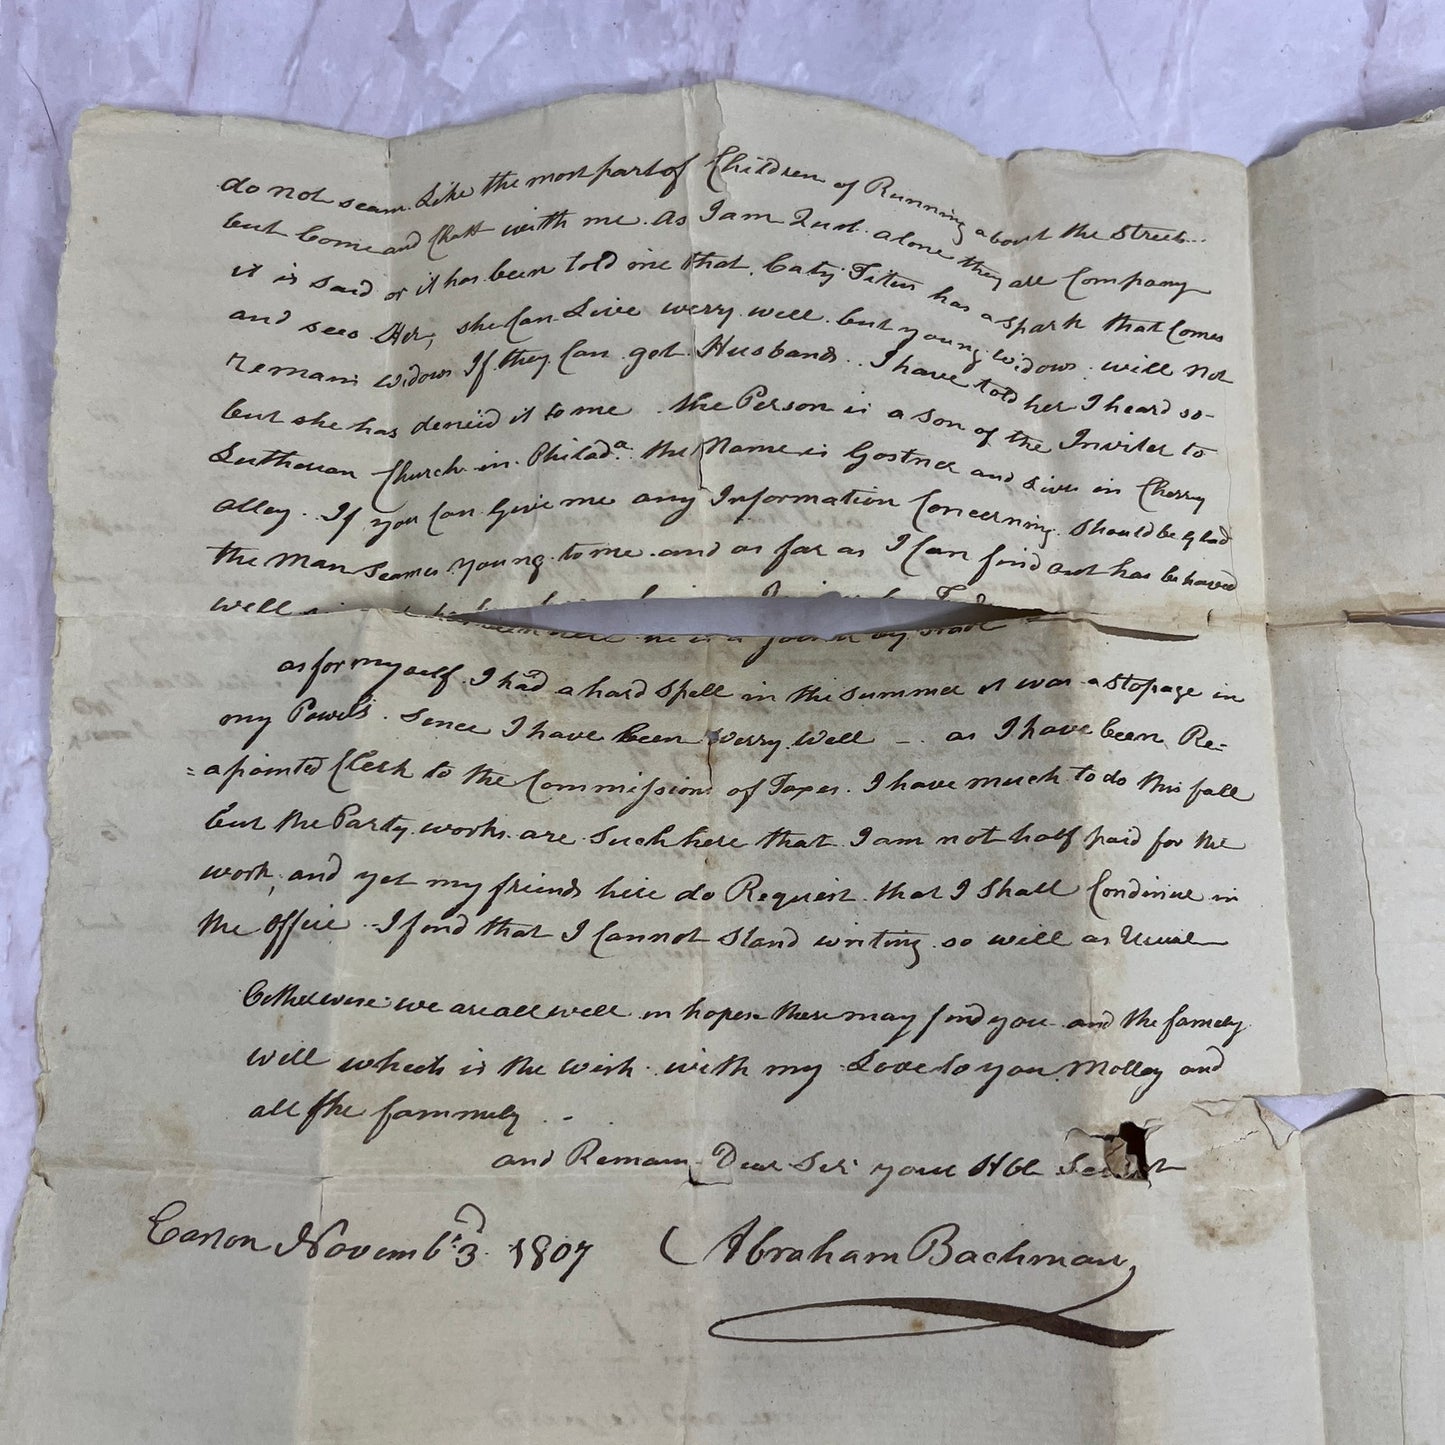 do not seam Like the most part of Children of Running about the Street
but Come and Chatt with me. As I am Lived alone they are Company
it is said or it has been told me that Caty Titus has a spark that Comes
and sees Her, she Can Live werry well but young widows will not
Remain widows If they Can get Husbands. I have told her I heard so
but she has deneid it to me. the Person is a son of the Inviter to
Lutheran Church in Philada. the Name is Gostner and Lives in Cherry
alley. If you Can Give me any Information Concerning Should be glad
the Man Seames Young to me and as far as I Can find out has behaved
well
as for my self I had a hard Spell in the Summer it was a Stopage in
my Powels. Sence I have been werry well - as I have been Re-
=apointed Clerk to the Commissions of Taxes. I have much to do this fall
but the Party works are Such here that I am not half paid for the
work, and yet my friends here do Request that I Shall Continue in
the Office. I find that I Cannot Stand writing so well as Usual
Otherwise we are all well in hopes these may find you and the famely
well which is the wish with my Love to you Molley and
all the fammely
and Remain Dear Sir your Hble
Easton Novembr. 3d 1807 Abraham Bachman